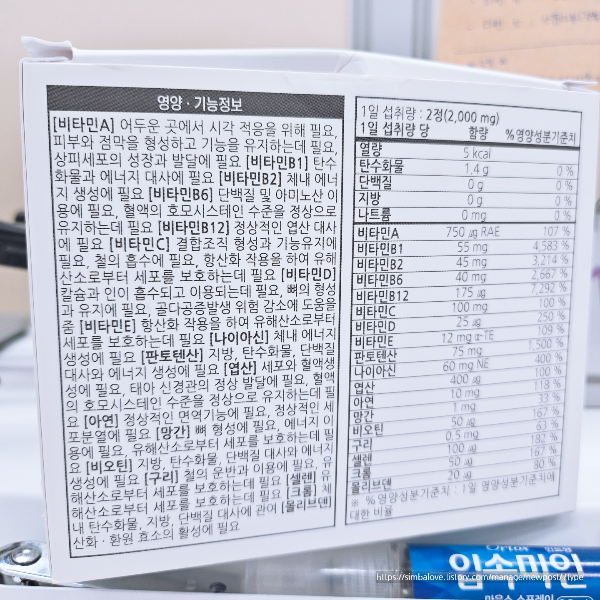 영양 · 기능정보
[비타민A] 어두운 곳에서 시각 적응을 위해 필요,
피부와 점막을 형성하고 기능을 유지하는데 필요,
상피세포의 성장과 발달에 필요 [비타민B1] 탄수
화물과 에너지 대사에 필요 [비타민B2] 체내 에너
지 생성에 필요 [비타민B6] 단백질 및 아미노산 이
용에 필요, 혈액의 호모시스테인 수준을 정상으로
유지하는데 필요 [비타민B12] 정상적인 엽산 대사
에 필요 [비타민C] 결합조직 형성과 기능유지에
필요, 철의 흡수에 필요, 항산화 작용을 하여 유해
산소로부터 세포를 보호하는데 필요 [비타민D]
칼슘과 인이 흡수되고 이용되는데 필요, 뼈의 형성
과 유지에 필요, 골다공증발생 위험 감소에 도움을
줌 [비타민E] 항산화 작용을 하여 유해산소로부터
세포를 보호하는데 필요 [나이아신] 체내 에너지
생성에 필요 [판토텐산] 지방, 탄수화물, 단백질
대사와 에너지 생성에 필요 [엽산] 세포와 혈액생
성에 필요, 태아 신경관의 정상 발달에 필요, 혈액
의 호모시스테인 수준을 정상으로 유지하는데 필
요 [아연] 정상적인 면역기능에 필요, 정상적인 세
포분열에 필요 [망간] 뼈 형성에 필요, 에너지 이
용에 필요, 유해산소로부터 세포를 보호하는데 필
요 [비오틴] 지방, 탄수화물, 단백질 대사와 에너지
생성에 필요 [구리] 철의 운반과 이용에 필요, 유
해산소로부터 세포를 보호하는데 필요 [셀렌] 유
해산소로부터 세포를 보호하는데 필요 [크롬] 체
내 탄수화물, 지방, 단백질 대사에 관여 [몰리브덴]
산화·환원 효소의 활성에 필요
1일 섭취량 : 2정(2,000 mg)
1일 섭취량 당 함량 %영양성분기준치
열량 5 kcal
탄수화물 1.4 g 0 %
단백질 0 g 0 %
지방 0 g 0 %
나트륨 0 mg 0 %
비타민A 750 ㎍ RAE 107 %
비타민B1 55 mg 4,583 %
비타민B2 45 mg 3,214 %
비타민B6 40 mg 2,667 %
비타민B12 175 ㎍ 7,292 %
비타민C 100 mg 100 %
비타민D 25 ㎍ 250 %
비타민E 12 mg α-TE 109 %
판토텐산 75 mg 1,500 %
나이아신 60 mg NE 400 %
엽산 400 ㎍ 100 %
아연 10 mg 118 %
망간 1 mg 33 %
비오틴 50 ㎍ 167 %
구리 0.5 mg 63 %
셀렌 100 ㎍ 182 %
크롬 50 ㎍ 167 %
몰리브덴 20 ㎍ 80 %
※ %영양성분기준치 : 1일 영양성분기준치에
대한 비율
https://simbalove.tistory.com/manage/newpost/?type